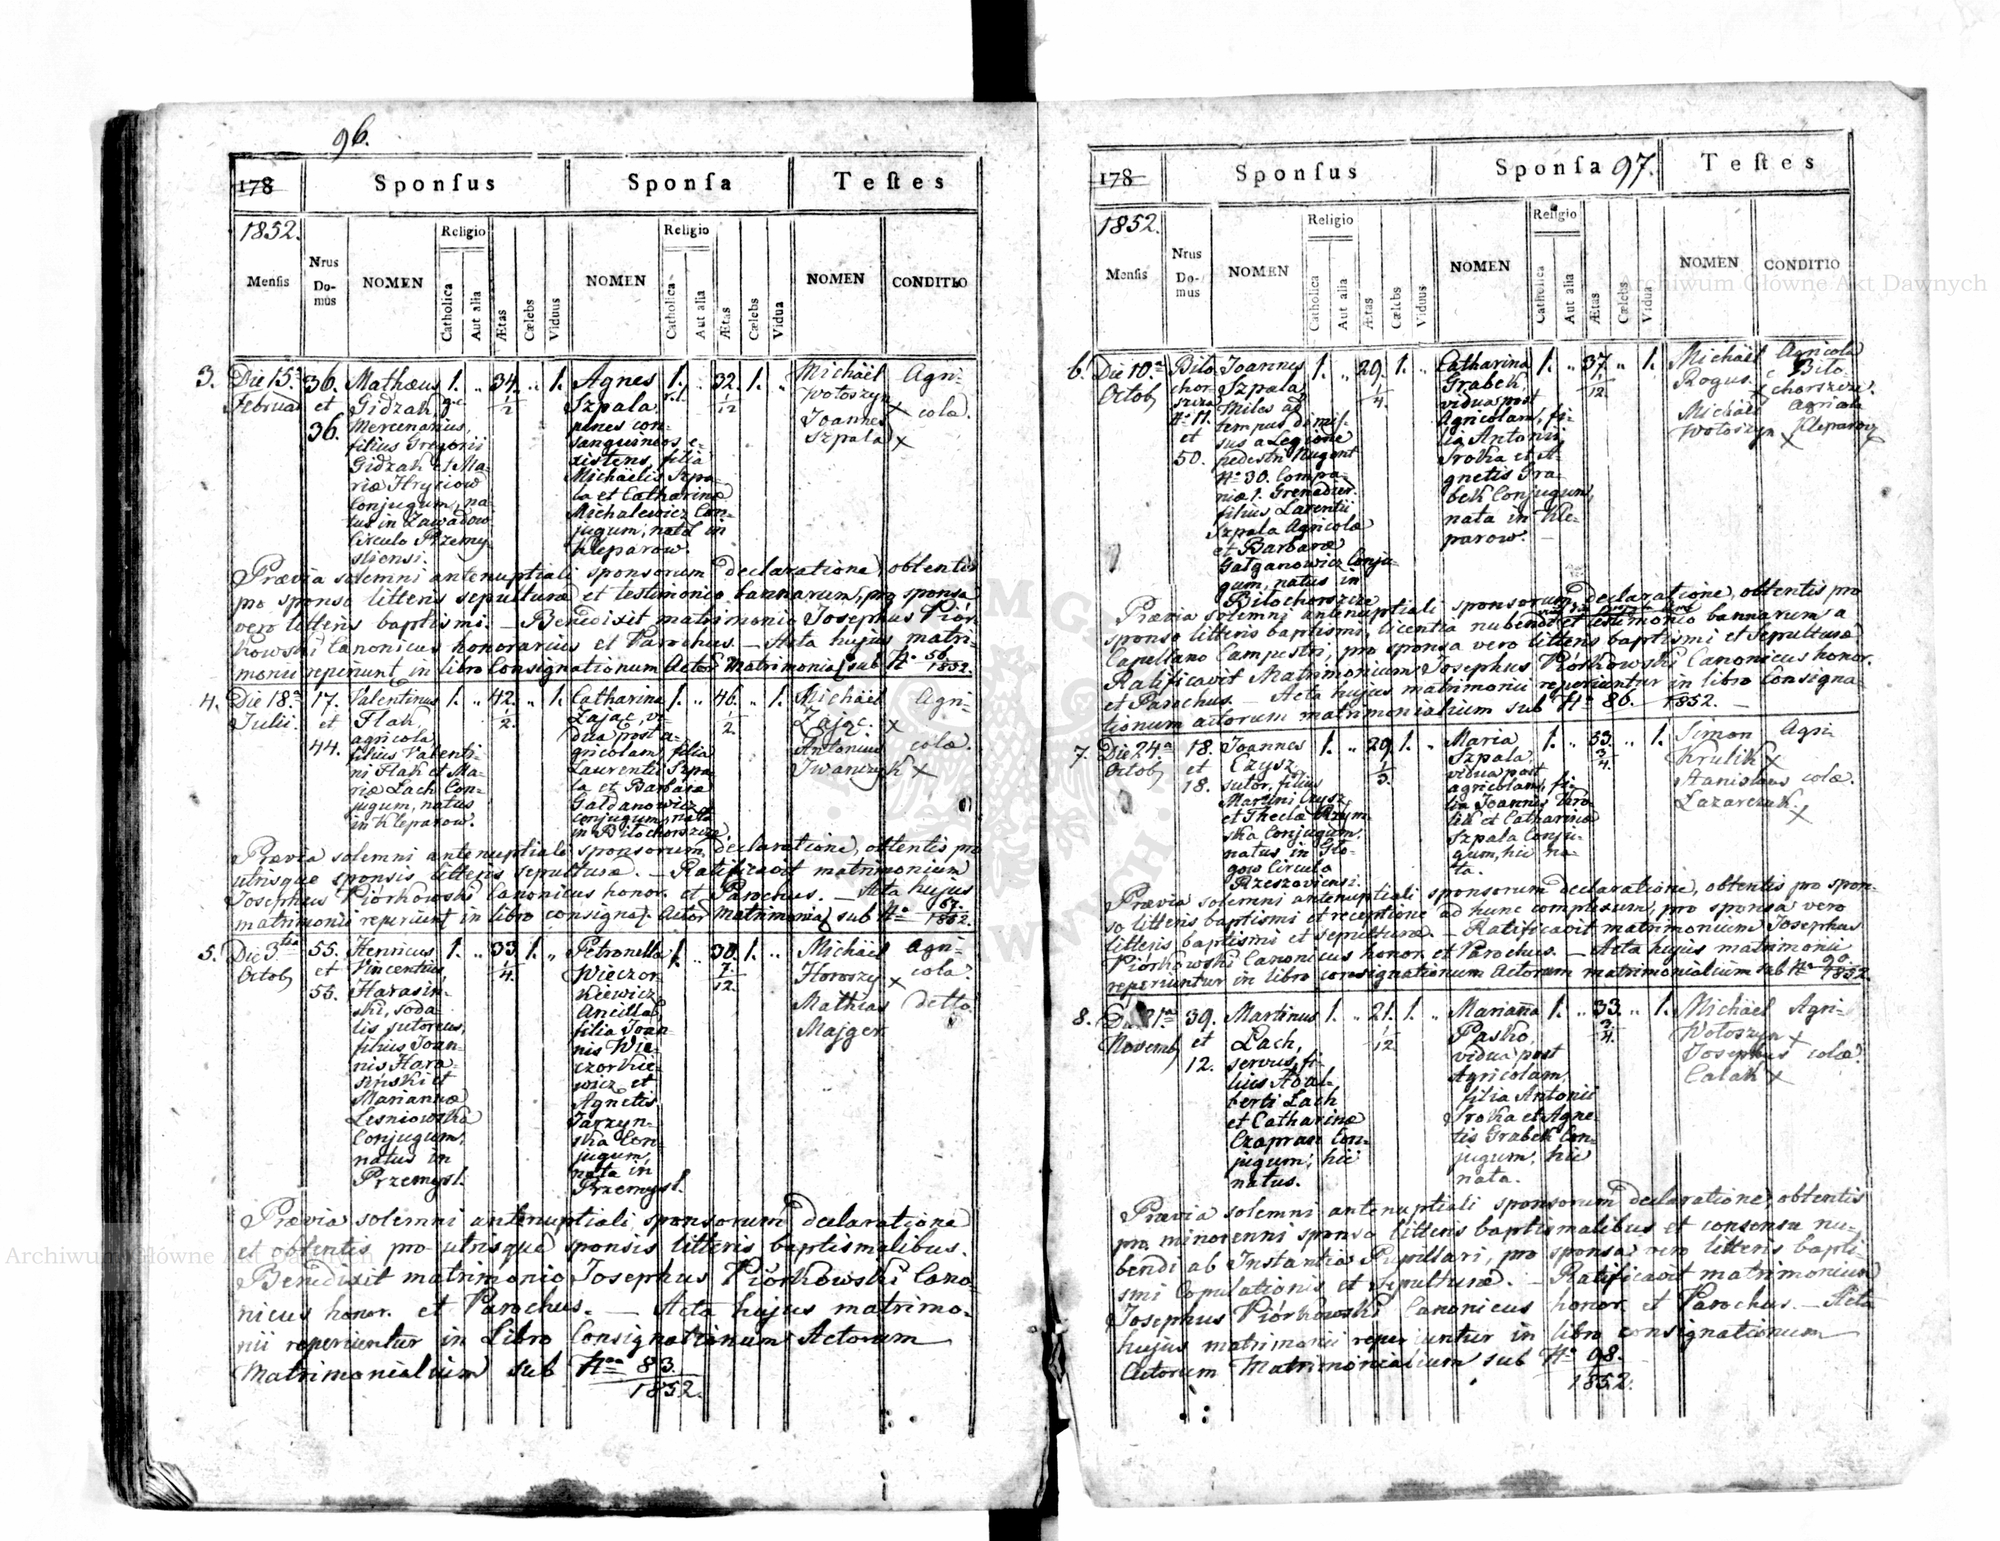 96.
178 Sponſus Sponſa Teſtes
1852.
Menſis Nrus Do-mus NOMEN Religio Catholica Aut alia Ætas Cælebs Viduus NOMEN Religio Catholica Aut alia Ætas Cælebs Vidua NOMEN CONDITIO
3. Die 15ª Februar
36. et 36.
Mathæus
Gidzak, g.c.
Mercenarius,
filius Gregorii
Gidzak et Ma-
riæ Hryciow
Conjugum, na-
tus in Zawadow
Circulo Przemy-
sliensi.
1. „ 34. 1/2 „ 1.
Agnes
Szpala
penes con-
sanguineos e-
xistens, filia
Michäelis Szpa-
la et Catharinæ
Michalewicz Con-
jugum, nata in
Kleparow.
1. r.l. „ 32. 1/12 1. „
Michäel
Wołoszyn x
Joannes
Szpala x
Agri-
colæ.
Prævia solemni antenuptiali sponsorum declaratione, obtentis
pro sponso litteris sepulturæ et testimonio bannorum, pro sponsa
vero litteris baptismi. — Benedixit matrimonio Josephus Piór-
kowski Canonicus honorarius et Parochus. — Acta hujus matri-
monii reperiunt in libro Consignationum Actor Matrimonial sub Nº 56/1852.
4. Die 18ª Julii
17. et 44.
Valentinus
Flak,
agricola,
filius Valenti-
ni Flak et Ma-
riæ Lach Con-
jugum, natus
in Kleparow.
1. „ 42. 1/2 „ 1.
Catharina
Zając, vi-
dua post a-
gricolam, filia
Laurentii Szpa-
la et Barbaræ
Galdanowicz
conjugum, nata
in Biłochorszcze
1. „ 46. 1/2 „ 1.
Michäel
Zając. x
Antonius
Iwanczyk x
Agri-
colæ.
Prævia solemni antenuptiali sponsorum declaratione, obtentis pro
utrisque sponsis litteris sepulturæ. — Ratificavit matrimonium
Josephus Piórkowski Canonicus honor. et Parochus. — Acta hujus
matrimonii reperiunt in libro consignat. Actor Matrimonial sub Nº 67/1852.
5. Die 3tia Octob
55. et 55.
Henricus
Vincentius
Harasin-
ski, soda-
lis sutoreus,
filius Joan-
nis Hara-
sinski et
Mariannæ
Lesniowska
Conjugum,
natus in
Przemysl.
1. „ 33. 1/4 1. „
Petronella
Wieczor-
kiewicz
Ancilla,
filia Joan-
nis Wie-
czorkie-
wicz et
Agnetis
Tarzyn-
ska Con-
jugum,
nata in
Przemysl.
1. „ 30. 7/12 1. „
Michäel
Horoszy x
Mathias
Majger
Agri-
cola
detto
Prævia solemni antenuptiali sponsorum declaratione
et obtentis pro utrisque sponsis litteris baptismalibus.
Benedixit matrimonio Josephus Piórkowski Cano-
nicus honor. et Parochus. — Acta hujus matrimo-
nii reperiuntur in Libro Consignationum Actorum
Matrimonialium sub Nro 83.
1852.
97.
178 Sponſus Sponſa Teſtes
1852.
Menſis Nrus Do-mus NOMEN Religio Catholica Aut alia Ætas Cælebs Viduus NOMEN Religio Catholica Aut alia Ætas Cælebs Vidua NOMEN CONDITIO
6. Die 10ª Octob
Biło-
chor-
szcza
Nº 11.
et
50.
Joannes
Szpala,
Miles ad
tempus dimis-
sus a Legione
pedestri Nugent
Nº 30. Compa-
niæ 1. Grenadier.
filius Larentii
Szpala Agricolæ
et Barbaræ
Galganowicz Conju-
gum, natus in
Biłochorszcze
1. „ 29. 1/4 1. „
Catharina
Grabek,
vidua post
Agricolam, fi-
lia Antonii
Sroka et A-
gnetis Gra-
bek Conjugum,
nata in Kle-
parow. —
1. „ 37. 1/12 „ 1.
Michäel
Rogus. x
Michäel
Wołoszyn x
Agricola
e Biło-
chorszcze.
Agricola
Kleparow
Prævia solemni antenuptiali sponsorum declaratione, obtentis pro
sponso litteris baptismi, licentia nubendi et testimonio bannorum a
Capellano Campestri, pro sponsa vero litteris baptismi et sepulturæ
Ratificavit Matrimonium Josephus Piórkowski Canonicus honor.
et Parochus. — Acta hujus matrimonii reperiuntur in libro Consigna-
tionum actorum matrimonialium sub Nº 86. 1852. —
7. Die 24ª Octob
18. et 18.
Joannes
Czysz,
sutor, filius
Martini Czysz
et Theclæ
ska Conjugum,
natus in Gło-
gow Circulo
Rzeszoviensi.
1. „ 29. 1/3. 1. „
Maria
Szpala,
vidua post
agricolam, fi-
lia Joannis
et Catharinæ
Szpala Conju-
gum, hic na-
ta.
1. „ 53. 3/4. „ 1.
Simon
Krulik x
Stanislaus
Lazarczuk.
x
Agri-
colæ.
Prævia solemni antenuptiali sponsorum declaratione, obtentis pro spon-
so litteris baptismi et receptione ad hunc complexum, pro sponsa vero
litteris baptismi et sepulturæ. — Ratificavit matrimonium Josephus
Piórkowski Canonicus honor. et Parochus. — Acta hujus matrimonii
reperiuntur in libro consignationum Actorum matrimonialium sub Nº 90/1852.
8. Die 21ª Novemb
39. et 12.
Martinus
Lach,
servus, fi-
lius Adal-
berti Lach
et Catharinæ
Czapran Con-
jugum, hic
natus.
1. „ 21. 1/12 1. „
Marianna
Pasko,
vidua post
Agricolam,
filia Antonii
Sroka et Agne-
tis Grabek Con-
jugum, hic
nata.
1. „ 33. 3/4. „ 1.
Michäel
Wołoszyn x
Josephus
Calak x
Agri-
colæ.
Prævia solemni antenuptiali sponsorum declaratione, obtentis
pro minorenni sponso litteris baptismalibus et consensu nu-
bendi ab Instantia Pupillari, pro sponsa vero litteris bapti-
smi Copulationis et Sepulturæ. — Ratificavit matrimonium
Josephus Piórkowski Canonicus honor. et Parochus. — Acta
hujus matrimonii reperiuntur in libro consignationum
Actorum Matrimonialium sub Nº 98.
1852.
Archiwum Główne Akt Dawnych
Archiwum Główne Akt Dawnych